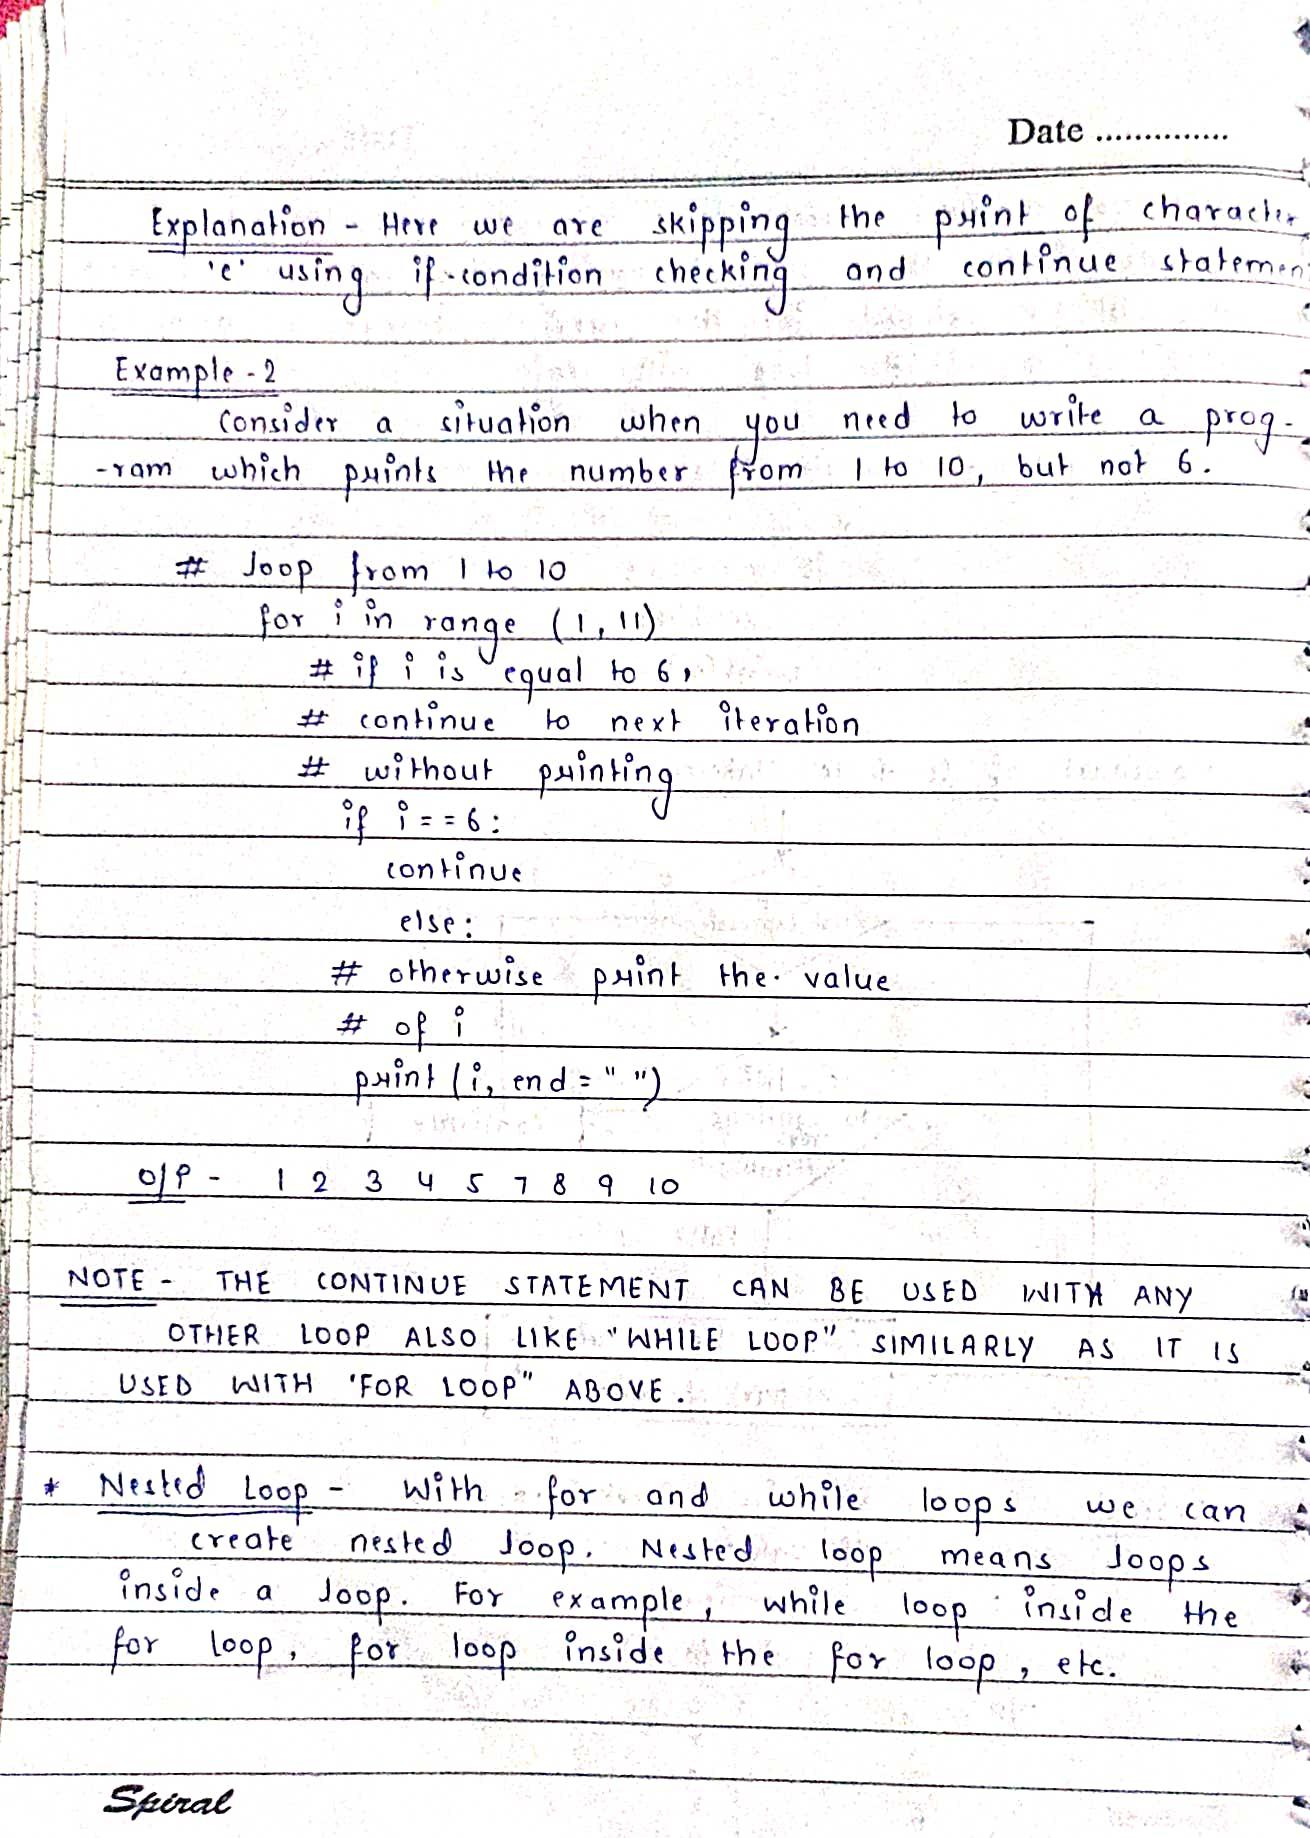 Date ..............
Explanation - Here we are skipping the print of character
'e' using if-condition checking and continue statemen
Example - 2
Consider a situation when you need to write a prog-
-ram which prints the number from 1 to 10, but not 6.
# loop from 1 to 10
for i in range (1, 11)
# if i is equal to 6,
# continue to next iteration
# without printing
if i == 6:
continue
else:
# otherwise print the value
# of i
print (i, end = " ")
O/P - 1 2 3 4 5 7 8 9 10
NOTE - THE CONTINUE STATEMENT CAN BE USED WITH ANY
OTHER LOOP ALSO LIKE "WHILE LOOP" SIMILARLY AS IT IS
USED WITH 'FOR LOOP" ABOVE.
* Nested Loop - With for and while loops we can
create nested loop. Nested loop means loops
inside a loop. For example, while loop inside the
for loop, for loop inside the for loop, etc.
Spiral